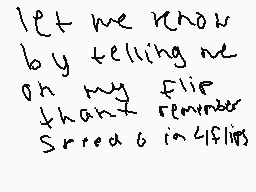 let me renow
by telling me
on my flip
thant remember
Speed 6 in 4flips